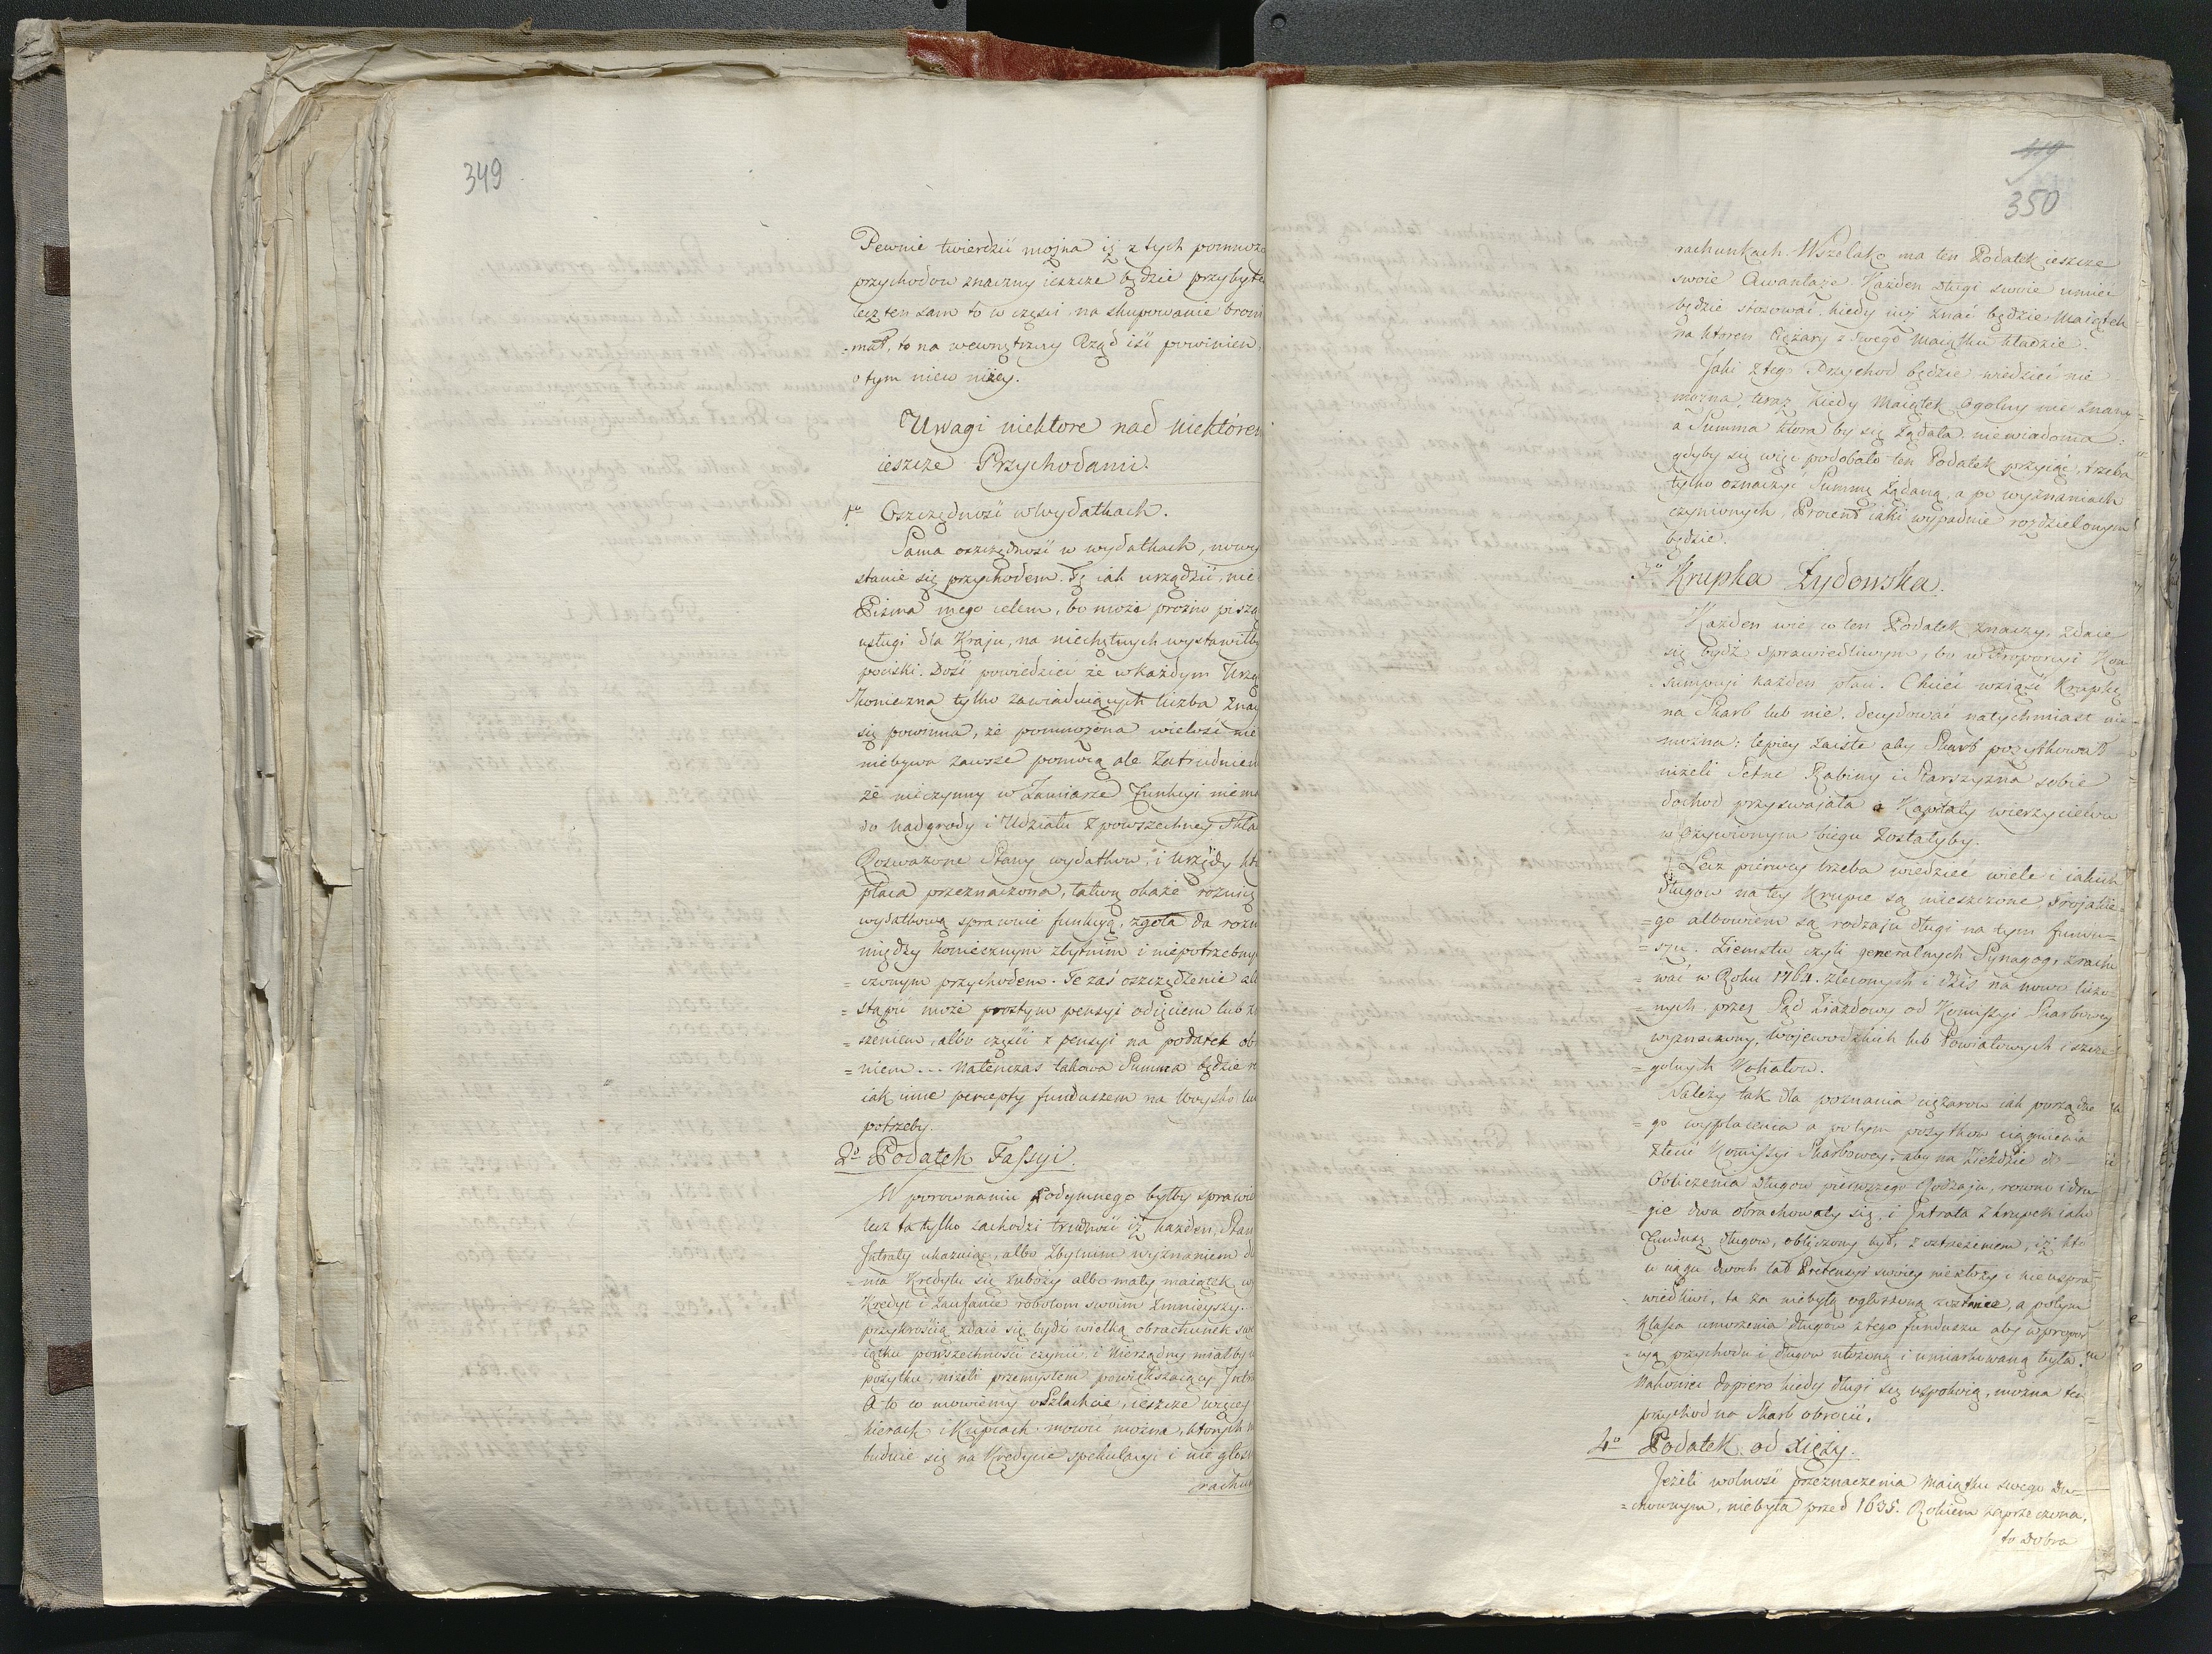 349
Pewnie twierdzić można iż z tych pomnożo
przychodow znaczny ieszcze będzie przybyte
lecz ten sam to w części na skupowanie broni
= mat, to na wewnętrzny Rząd iść powinien,
o tym nieco niżey.
Uwagi niektore nad niektórem
ieszcze Przychodami.
1o Oszczędność w wydatkach.
Sama oszczędność w wydatkach, nowy
stanie się przychodem. Tę iak urządzić, nie
Pisma mego celem, bo może prożno pisząc
usługi dla Kraju, na niechętnych wystawiłby
pociski. Dość powiedzieć że w każdym Urzę
Konieczna tylko zawiaduiących liczba znay
się powinna, że pomnożona wielość nie
niebywa zawsze pomocą ale zatrudnien
że nieczynny w zamiarze Funkcyi niema
do nadgrody i Udziału z powszechney Skła
Rozważone Stany wydatkow, i Urzędy kt
płaca przeznaczona, łatwo okaże roznicę
wydatkową sprawnie funkcyą, zgoła da rozn
między koniecznym zbytnim i niepotrzebny
= czonym przychodem. Te zaś oszczędzenie alb
= stąpić może prostym pensyi odięciem lub z
= szeniem, albo części z pensyi na podatek ob
= niem ... Natenczas takowa Summa będzie r
iak inne percepty funduszem na Woysko lu
potrzeby.
2o Podatek Fassyi.
W porownaniu Podymnego byłby sprawie
lecz ta tylko zachodzi trudność iż każden Stan
Intraty ukazuiąc, albo zbytnim wyznaniem d
= ma Kredytu się zuboży albo mały maiątek w
Kredyt i zaufanie robotom swoim zmnieyszy.
przykrością zdaie się bydź wielką obrachunek sw
iątku powszechności czynić, i Nierządny miałby w
pożytku, niżeli przemysłem powiększaiący Intr
A to co mowiemy o Szlachcie, ieszcze więcey
kierach i Kupcach mowić można, ktorych m
buduie się na Kredycie spekulacyi i nie głos
rachun
350
rachunkach. Wszelako ma ten Podatek ieszcze
swoie Awantaże. Każden długi swoie umieć
będzie stosować, kiedy iuż znać będzie Maiątek
na ktoren Ciężary z swego Maiątku kładzie.
Jaki z tego Przychod będzie wiedzieć nie
można, teraz kiedy Maiątek Ogolny nie znany
a Summa ktora by się żądała niewiadoma:
gdyby się więc podobało ten Podatek przyiąć, trzeba
tylko oznaczyć Summę żądaną, a po wyznaniach
czynionych, Procent iaki wypadnie rozdzielonym
będzie.
3o Krupka Żydowska.
Każden wie co ten Podatek znaczy, zdaie
się bydź sprawiedliwym, bo w Proporcyi Kon
= sumpcyi każden płaci. Chcieć wziąść Krupkę
na Skarb lub nie, decydować natychmiast nie
można: lepiey zaiste aby Skarb pozyskował
niżeli Setne Rabiny i Starszyzna sobie
dochod przyswajała a Kapitały wierzycielow
w Ożywionym biegu zostałyby.
Lecz pierwey trzeba wiedzieć wiele i iakich
długow na tey Krupce są mieszczone, Trojakie=
= go albowiem są rodzaju długi na tym fundu=
= szu. Ziemstw czyli generalnych Synagog, zracho
= wać w Roku 1764. zleconych i dziś na nowo liczo=
= nych przez Sąd Ziazdowy od Komissyi Skarbowey
wyznaczony, Wojewodzkich lub Powiatowych i szcze
= gulnych Kahałow.
Należy tak dla poznania ciężarow iak porządne
= go wypłacenia a potym pożytkow ciągnienia
zlecić Komissyi Skarbowey, aby na Zieździe do
Obliczenia długow pierwszego Rodzaju, rowno i dru=
= gie dwa obrachowały się, i Intrata z krupek iako
Fundusz długow, obliczony był, z ostrzeżeniem, iż kto
w ciągu dwoch lat Pretensyi swoiey niezłoży i nieuspra
= wiedliwi, ta za niebyłą ogłoszoną zostanie, a potym
Klassa umorzenia długow z tego funduszu aby w propor
= cyą przychodu i długow ułożoną i umiarkowaną była.
Nakoniec dopiero kiedy długi się uspokoią, można ten
przychod na Skarb obrocić.
4o Podatek od Xięży.
Jeżeli wolność przeznaczenia Maiątku swego Du=
= chownym, niebyła przed 1635. Rokiem zaprzeczona,
to Dobra